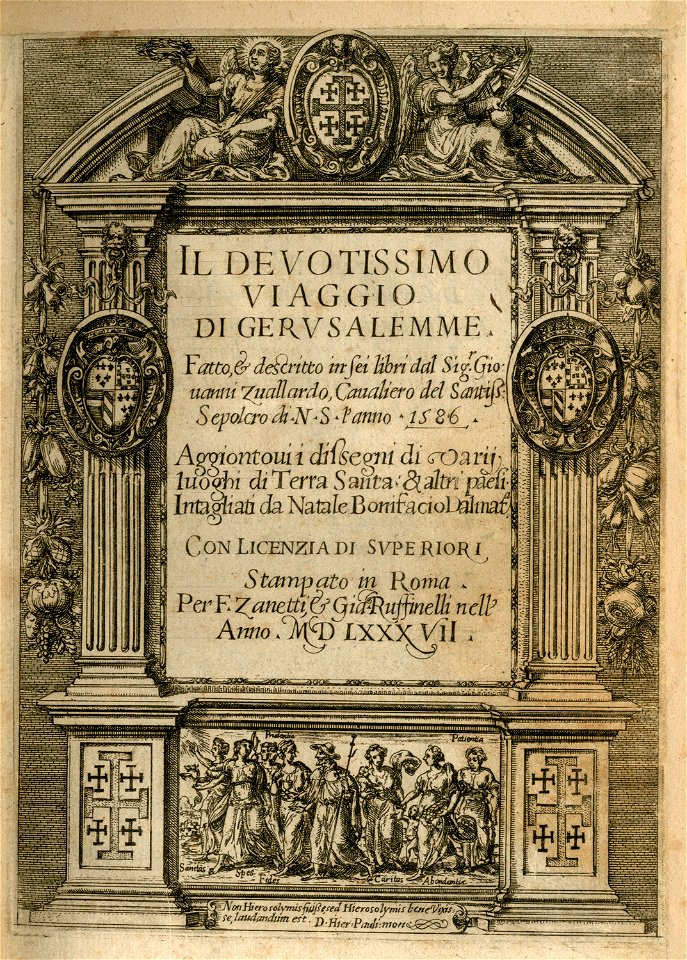 IL DEVOTISSIMO
VIAGGIO
DI GERVSALEMME.
Fatto, & descritto in sei libri dal Sigr. Gio:
uanni Zuallardo, Caualiero del Santiss:
Sepolcro di N. S. l'anno . 1586 .
Aggiontoui i dissegni di varij
luoghi di Terra Santa: & altri paesi.
Intagliati da Natale Bonifacio Dalmat.
CON LICENZIA DI SVPERIORI
Stampato in Roma .
Per F. Zanetti, & Gia. Ruffinelli nell
Anno . MD LXXXVII .
Prudentia
Patientia
Sanctus
Spes
Fides
Caritas
Abondantia
Non Hierosolymis fuisse, sed Hierosolymis bene vixis
se, laudandum est . D. Hier. Pauli: mon